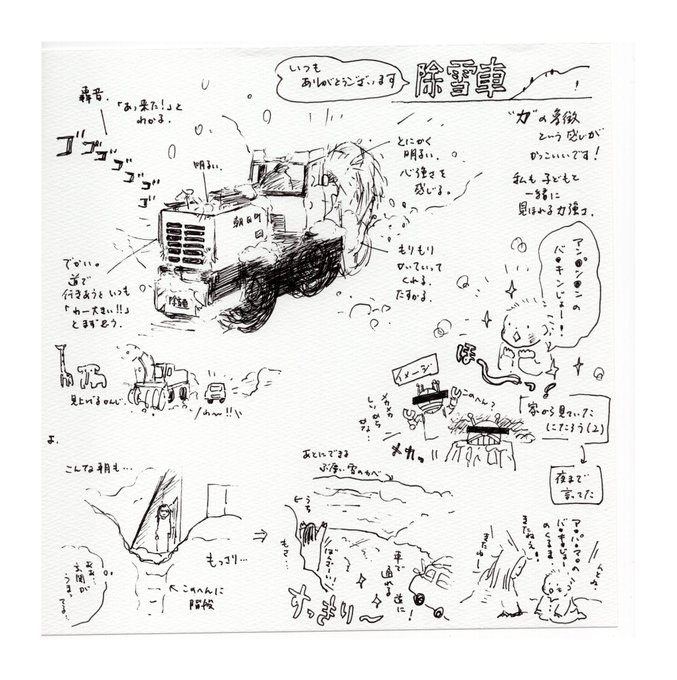 いつも
ありがとうございます
除雪車
轟音。
「あっ来た！」と
わかる。
ゴゴゴゴゴゴゴ
明るい。
とにかく
明るい。
心強さを
感じる。
"力"の象徴
という感じが
かっこいいです！
私も子どもと
一緒に
見ほれる力強さ。
朝日町
除雪
でかい。
道で
行きあうといつも
「わー大きい!!」
とまず思う。
もりもり
かいていって
くれる。
たすかる。
アン●ン●ンの
バ●キンじょー！
ほ
見上げるかんじ。
わ〜!!
イメージ
メカメカ
しいから
かな…
このへん？
メカっ
家から見ていた
こたろう(2)
夜まで
言ってた
よ。
こんな朝も…
もっさり…
←このへんに
階段
玄関が
うまってる…
⇒
あとにできる
ぶ厚い雪のかべ
←うち
もさ…
車で
通れる
道に！
すっきり〜
またねえ